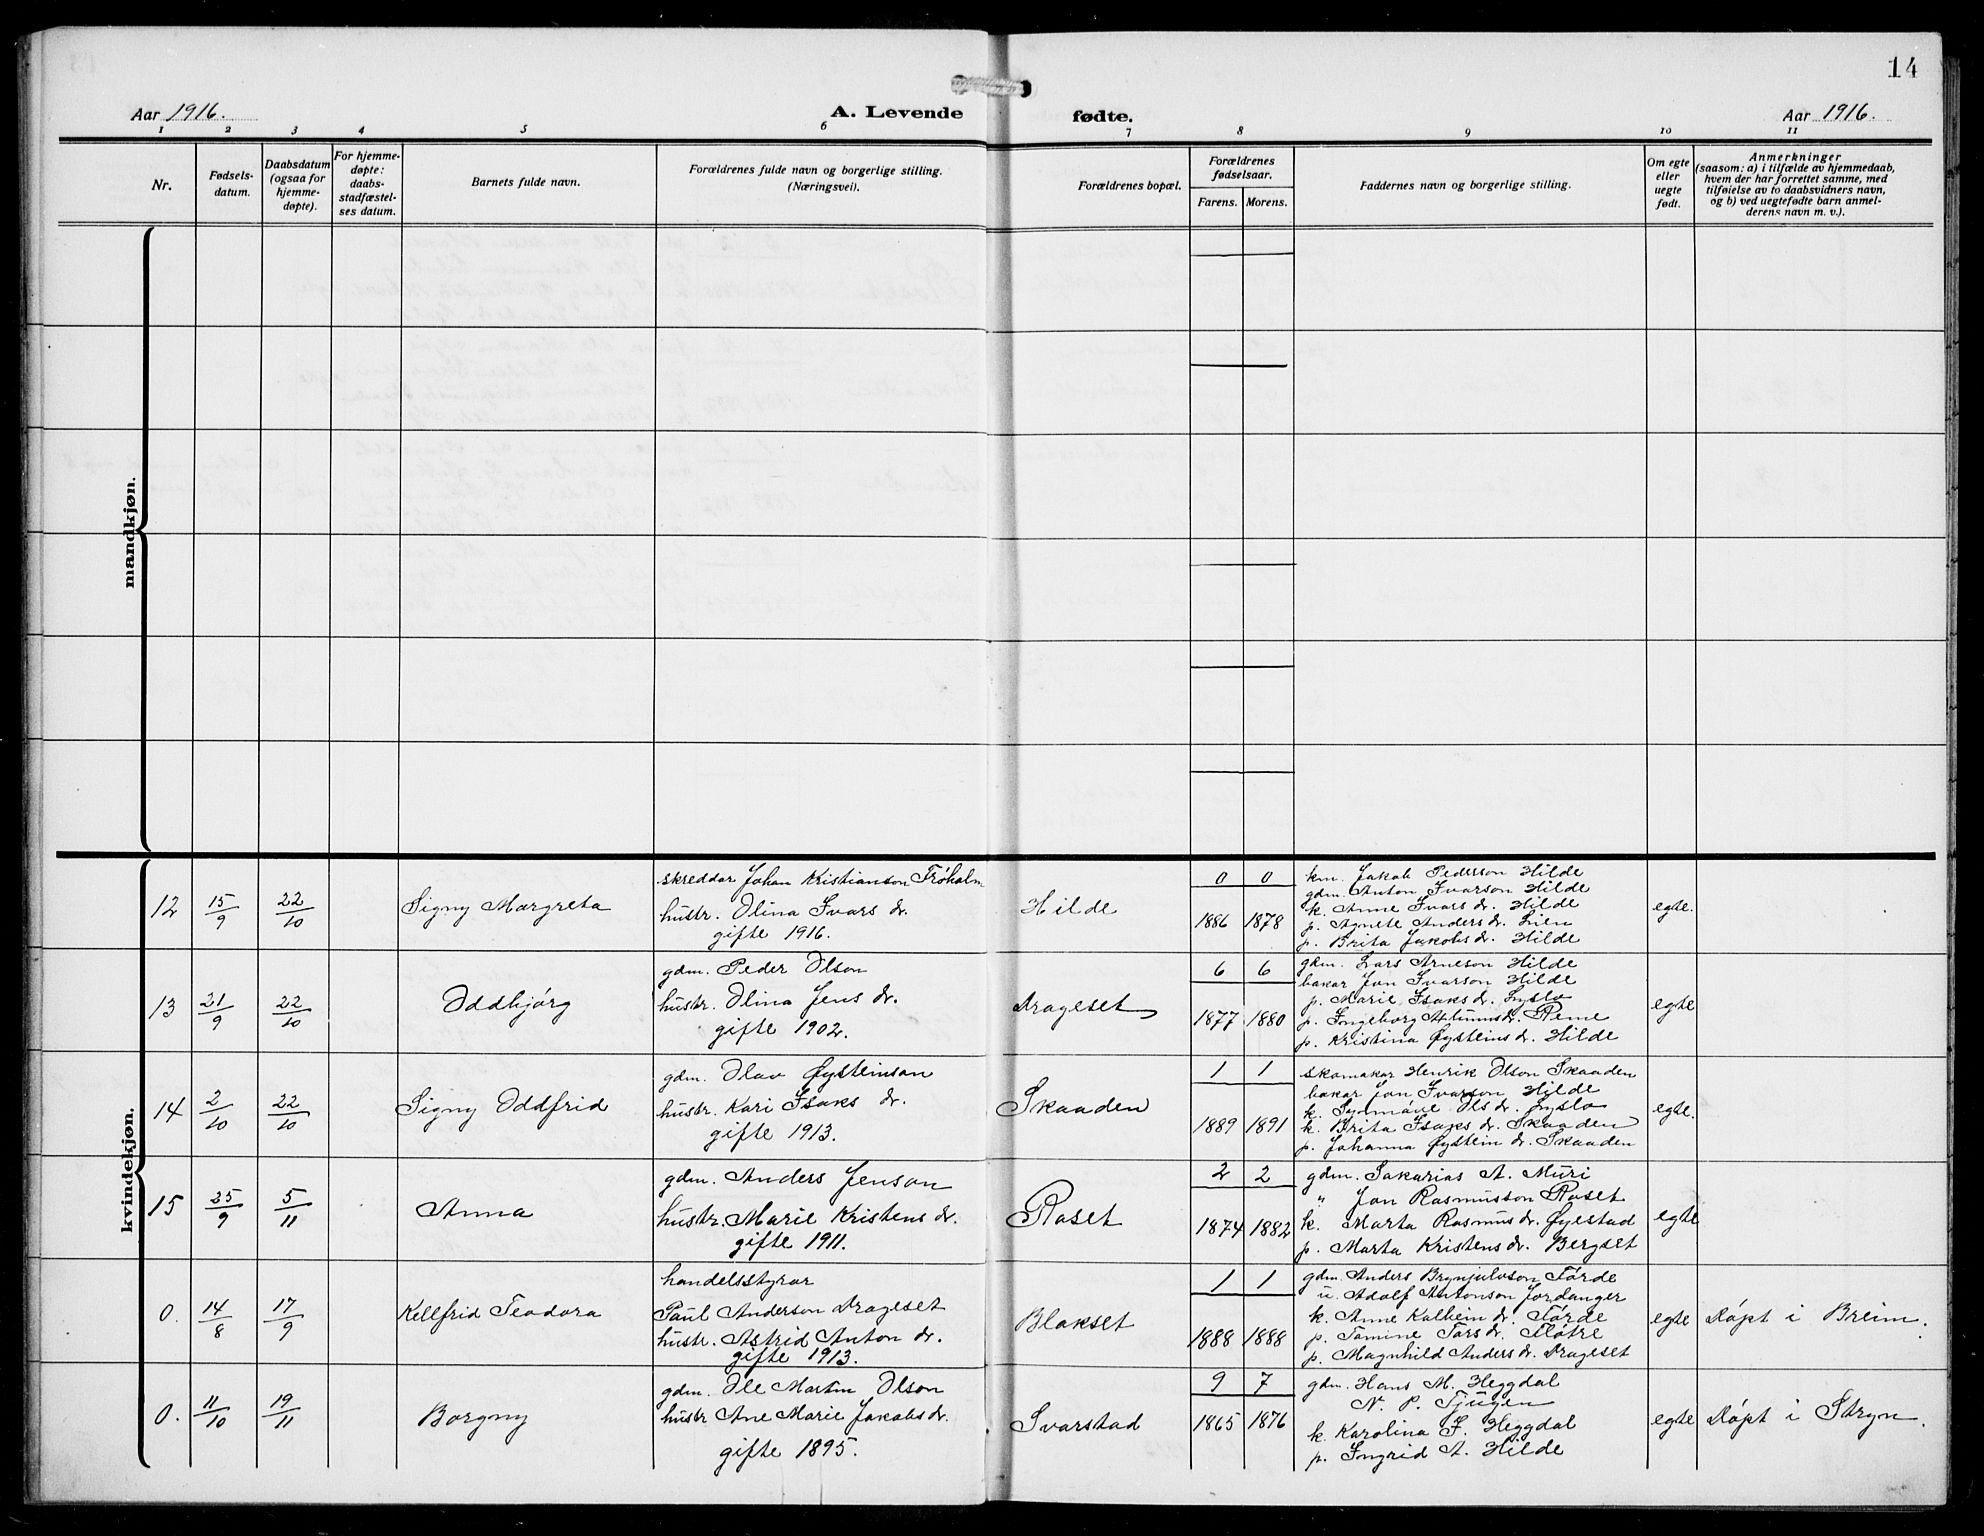 14
Aar 1916.
A. Levende fødte.
Aar 1916.
1 2 3 4 5 6 7 8 9 10 11
Nr.
Fødsels-
datum.
Daabsdatum
(ogsaa for
hjemme-
døpte).
For hjemme-
døpte:
daabs-
stadfæstel-
ses datum.
Barnets fulde navn.
Forældrenes fulde navn og borgerlige stilling.
(Næringsvei).
Forældrenes bopæl.
Forældrenes
fødselsaar.
Farens. Morens.
Faddernes navn og borgerlige stilling.
Om egte
eller
uegte
født.
Anmerkninger
(saasom: a) i tilfælde av hjemmedaab,
hvem der har forrettet samme, med
tilføielse av to daabsvidners navn,
og b) ved uegtefødte barn anmel-
derens navn m. v.).
mandkjøn.
kvindekjøn.
12
15/9
22/10
Signy Margreta
skreddar Johan Kristianson Frøholm
hustr. Olina Ivars dr.
gifte 1916.
Hilde
0 0
1886 1878
km. Jakob Pederson Hilde
gdm. Anton Ivarson Hilde
k. Anne Ivars dr. Hilde
p. Agnete Anders dr. Lien
p. Brita Jakobs dr. Hilde
egte.
13
21/9
22/10
Oddbjørg
gdm. Peder Olson
hustr. Olina Jens dr.
gifte 1902.
Drageset
6 6
1877 1880
gdm. Lars Arneson Hilde
bakar Jon Ivarson Hilde
p. Marie Isaks dr. Lyslo
p. Ingeborg dr. Reme
p. Kristina Øysteins dr. Hilde
egte
14
2/10
22/10
Signy Oddfrid
gdm. Olav Øysteinson
hustr. Kari Isaks dr.
gifte 1913.
Skaaden
1 1
1889 1891
skomakar Henrik Olson Skaaden
bakar Jon Ivarson Hilde
k. Synnøve Ols dr. Lyslo
k. Brita Isaks dr. Skaaden
p. Johanna Øystein dr. Skaaden
egte.
15
25/9
5/11
Anna
gdm. Anders Jenson
hustr. Marie Kristens dr.
gifte 1911.
Roset
2 2
1874 1882
gdm. Sakarias A. Muri
" Jon Rasmusson Roset
k. Marta Rasmus dr. Øyestad
p. Marta Kristens dr. Bergset
egte
0.
14/8
17/9
Kellfrid Teodora
handelsstyrar
Paul Anderson Drageset
hustr. Astrid Anton dr.
gifte 1913.
Blakset
1 1
1888 1888
gdm. Anders Brynjulvson Førde
u. Adolf Antonson Jordanger
k. Anne Kolbein dr. Førde
p. Tomine Tors dr. Fløtre
p. Magnhild Anders dr. Drageset
egte
Døpt i Breim.
0.
11/10
19/11
Borgny
gdm. Ole Martin Olson
hustr Ane Marie Jakobs dr.
gifte 1895.
Svarstad
9 7
1865 1876
gdm. Hans M. Heggdal
N. P. Tjugen
k. Karolina F. Heggdal
p. Ingrid A. Hilde
egte
Døpt i Stryn.